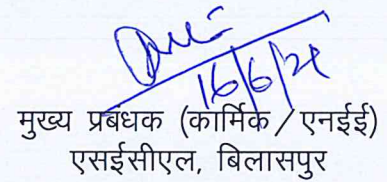 16/6/21
मुख्य प्रबंधक (कार्मिक/एनईई)
एसईसीएल, बिलासपुर